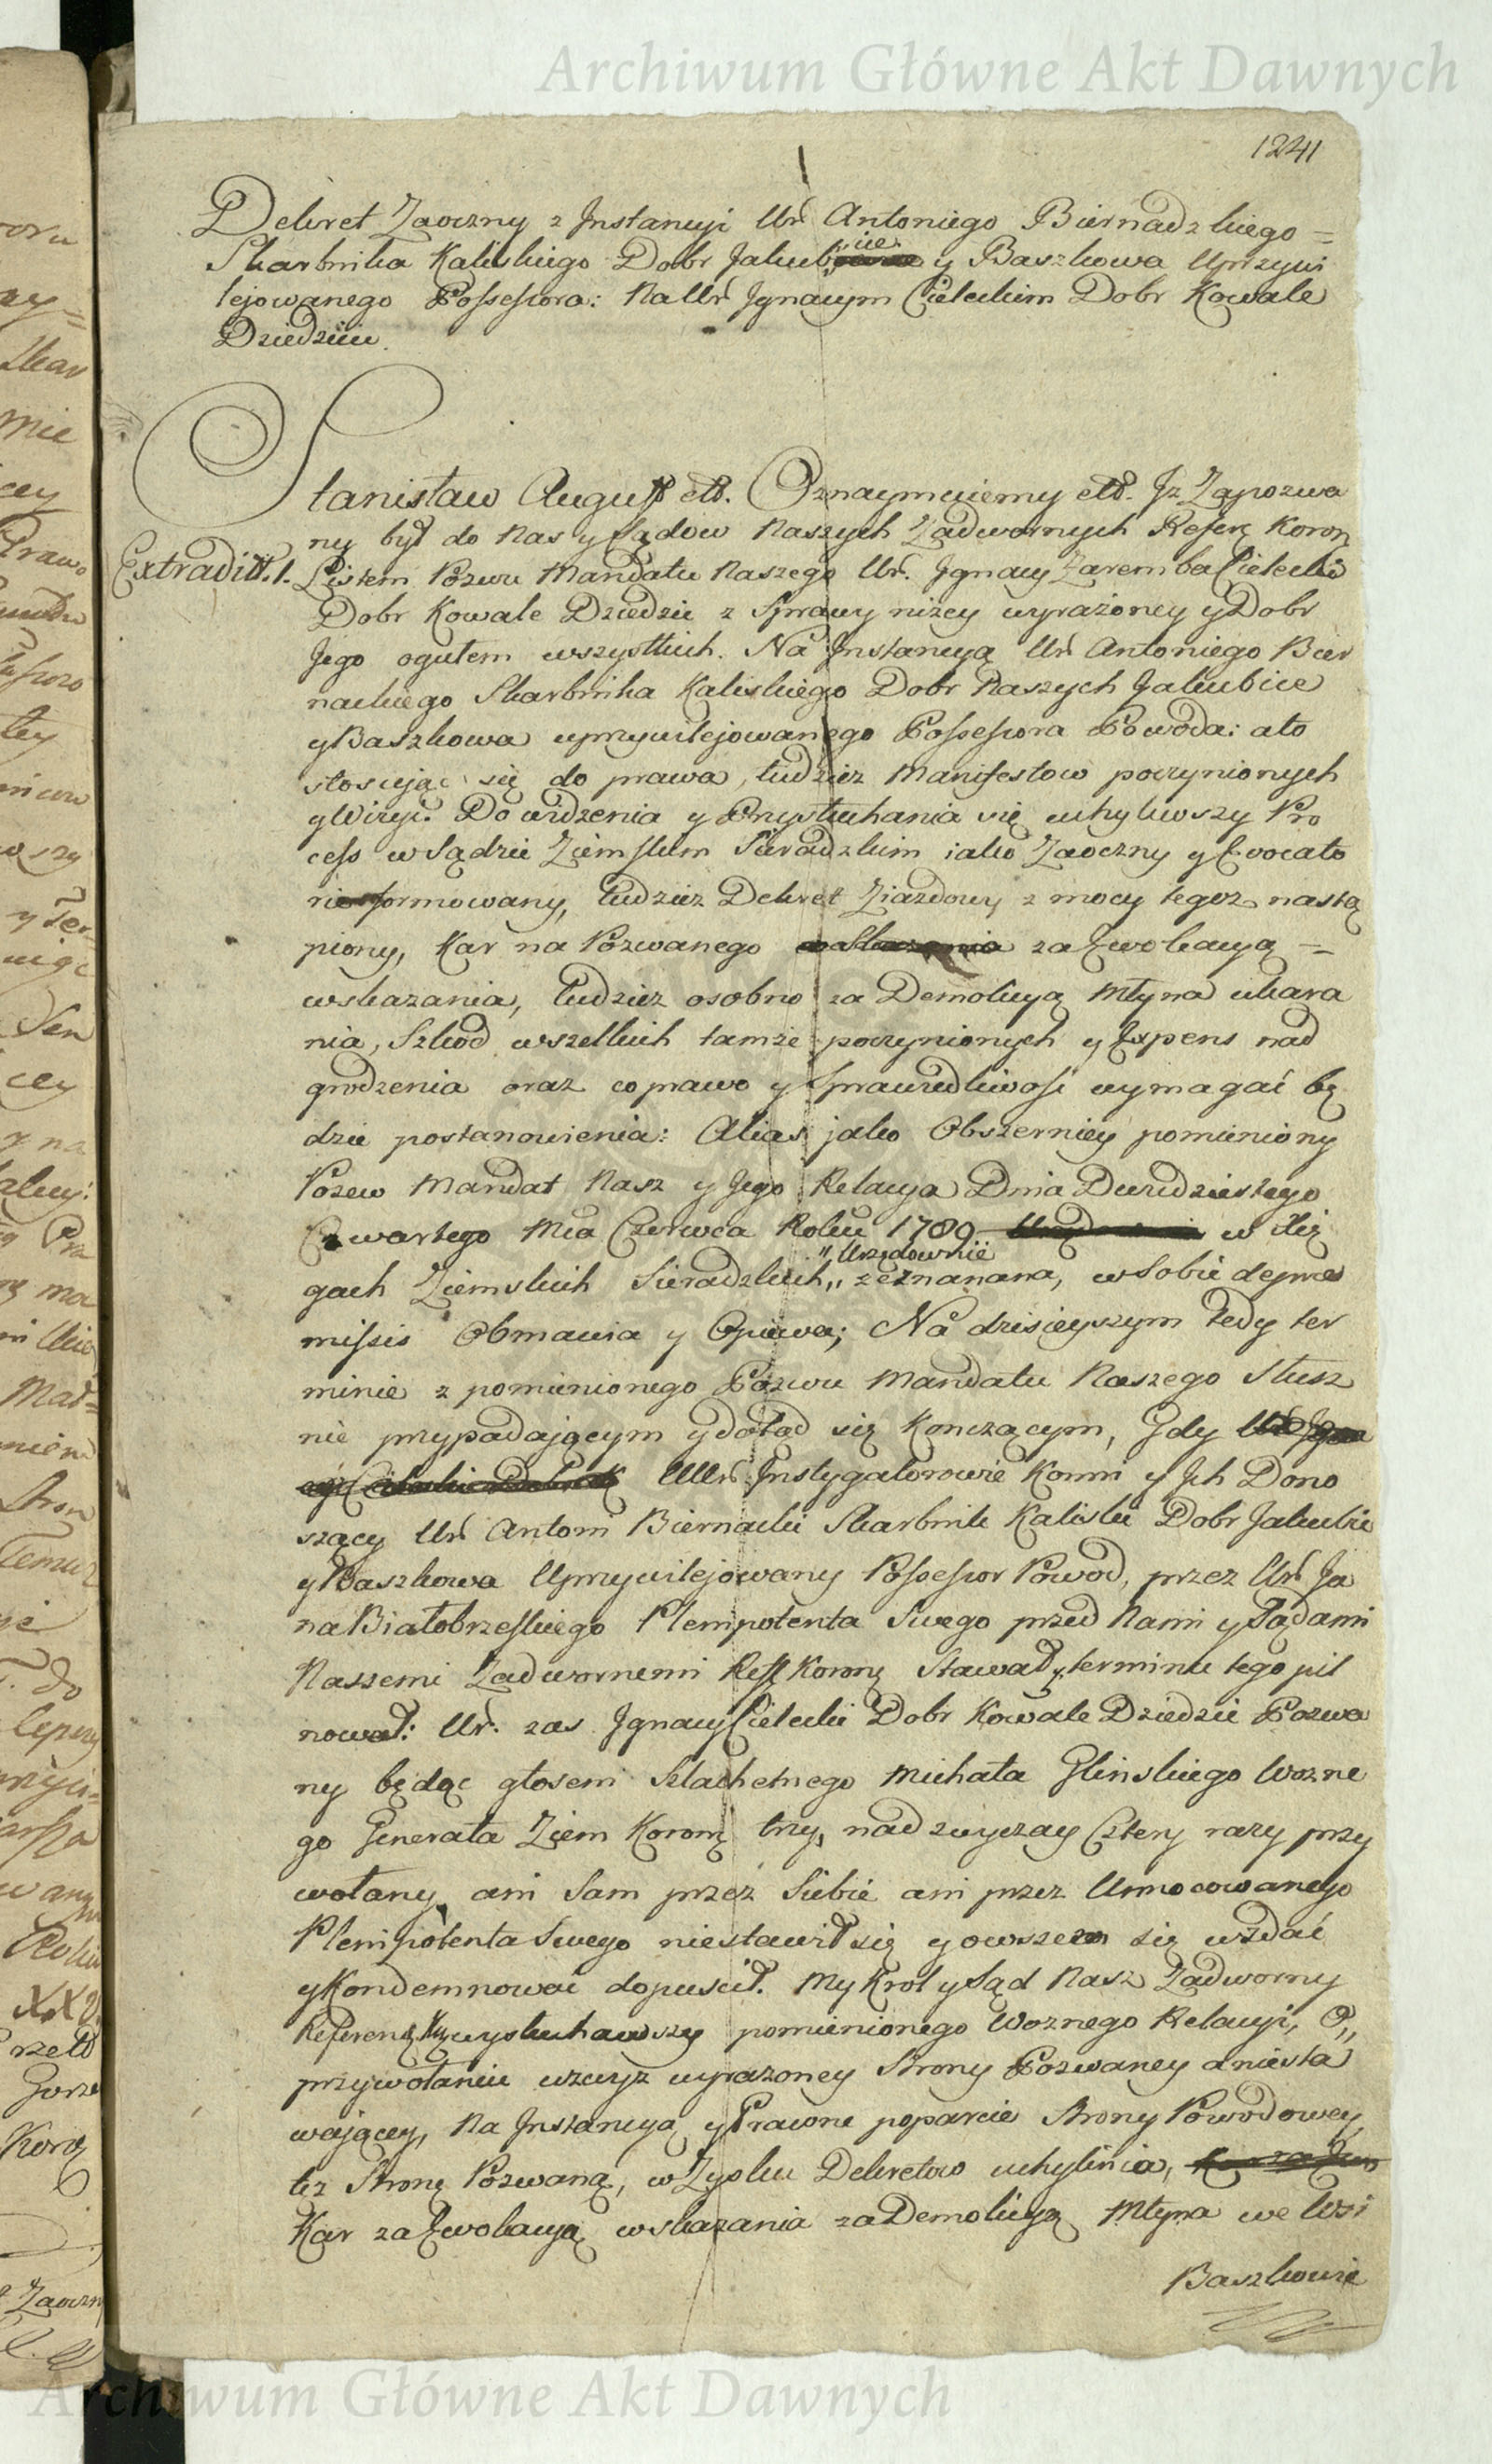 Archiwum Główne Akt Dawnych
1241
Dekret Zaoczny z Instancyi Ur Antoniego Biernadzkiego =
Skarbnika Kaliskiego Dobr Jakubice y Baszkowa Uprzywi
lejowanego Possessora: Na Ur Jgnacym Cieleckim Dobr Kowale
Dziedzicu.
Stanisław August etc. Oznaymuiemy etc. Jz Zapozwa
ny był do Nas y Sądow Naszych Zadwornych Refer: Koron
Extradit. 1. Listem Pozwu Mandatu Naszego Ur. Jgnacy Zaremba Cielecki
Dobr Kowale Dziedzic z Sprawy niżey wyrażoney y Dobr
Jego ogułem wszystkich. Na Jnstancyą Ur Antoniego Bier
nackiego Skarbnika Kaliskiego Dobr Naszych Jakubice
y Baszkowa uprzywilejowanego Possessora Powoda: a to
stosując się do prawa, tudzież Manifestow poczynionych
y Wizyi. Do widzenia y Przysłuchania się uchyliwszy Pro
cess w Sądzie Ziemskim Sieradzkim iako Zaoczny y Evocato
rie formowany, tudzież Dekret Ziazdowy z mocy tegoz nastą
piony, Kar na Pozwanego za Ewokacyą =
wskazania, tudziez osobno za Demolicyą Młyna ukara
nia, Szkod wszelkich tamże poczynionych y Expens nad
grodzenia oraz co prawo y Sprawiedliwość wymagać bę
dzie postanowienia: Alias jako Obszerniey pomieniony
Pozew Mandat Nasz y Jego Relacya Dnia Dwudziestego
Czwartego Mca Czerwca Roku 1789 w Xię
gach Ziemskich Sieradzkich „ Urzędownie zeznanana, w Sobie de prae
missis Obmawia y Opiewa; Na dzisieyszym tedy ter
minie z pomienionego Pozwu Mandatu Naszego Słusz
nie przypadającym y dotąd się Konczącym, Gdy
UUr Jnstygatorowie Koron y Jch Dono
szący Ur Antoni Biernacki Skarbnik Kaliski Dobr Jakubic
y Baszkowa Uprzywilejowany Possessor Powod, przez Ur Ja
na Białobrzeskiego Plenipotenta Swego przed Nami y Sądami
Naszemi Zadwornemi Reff Koronn Stawał y terminu tego pil
nował: Ur. zas Jgnacy Cielecki Dobr Kowale Dziedzic Pozwa
ny będąc głosem Szlachetnego Michała Glinskiego Wozne
go Generała Ziem Koronn trzy, nad zwyczay Cztery razy przy
wołany, ani Sam przez Siebie ani przez Umocowanego
Plenipotenta Swego niestawił się y owszem się wzdać
y Kondemnować dopuscił. My Krol y Sąd Nasz Zadworny
Referen: wysłuchawszy pomienionego Woznego Relacyi, O„
przywołaniu wzwyz wyrazoney Strony Pozwaney a niesta
wającey, Na Jnstancyą y Prawne poparcie Strony Powodowey,
tez Stronę Pozwaną, w Zysku Dekretow uchylenia,
Kar za Ewokacyą wskazania za Demolicyą Młyna we Wsi
Baszkowie
Archiwum Główne Akt Dawnych